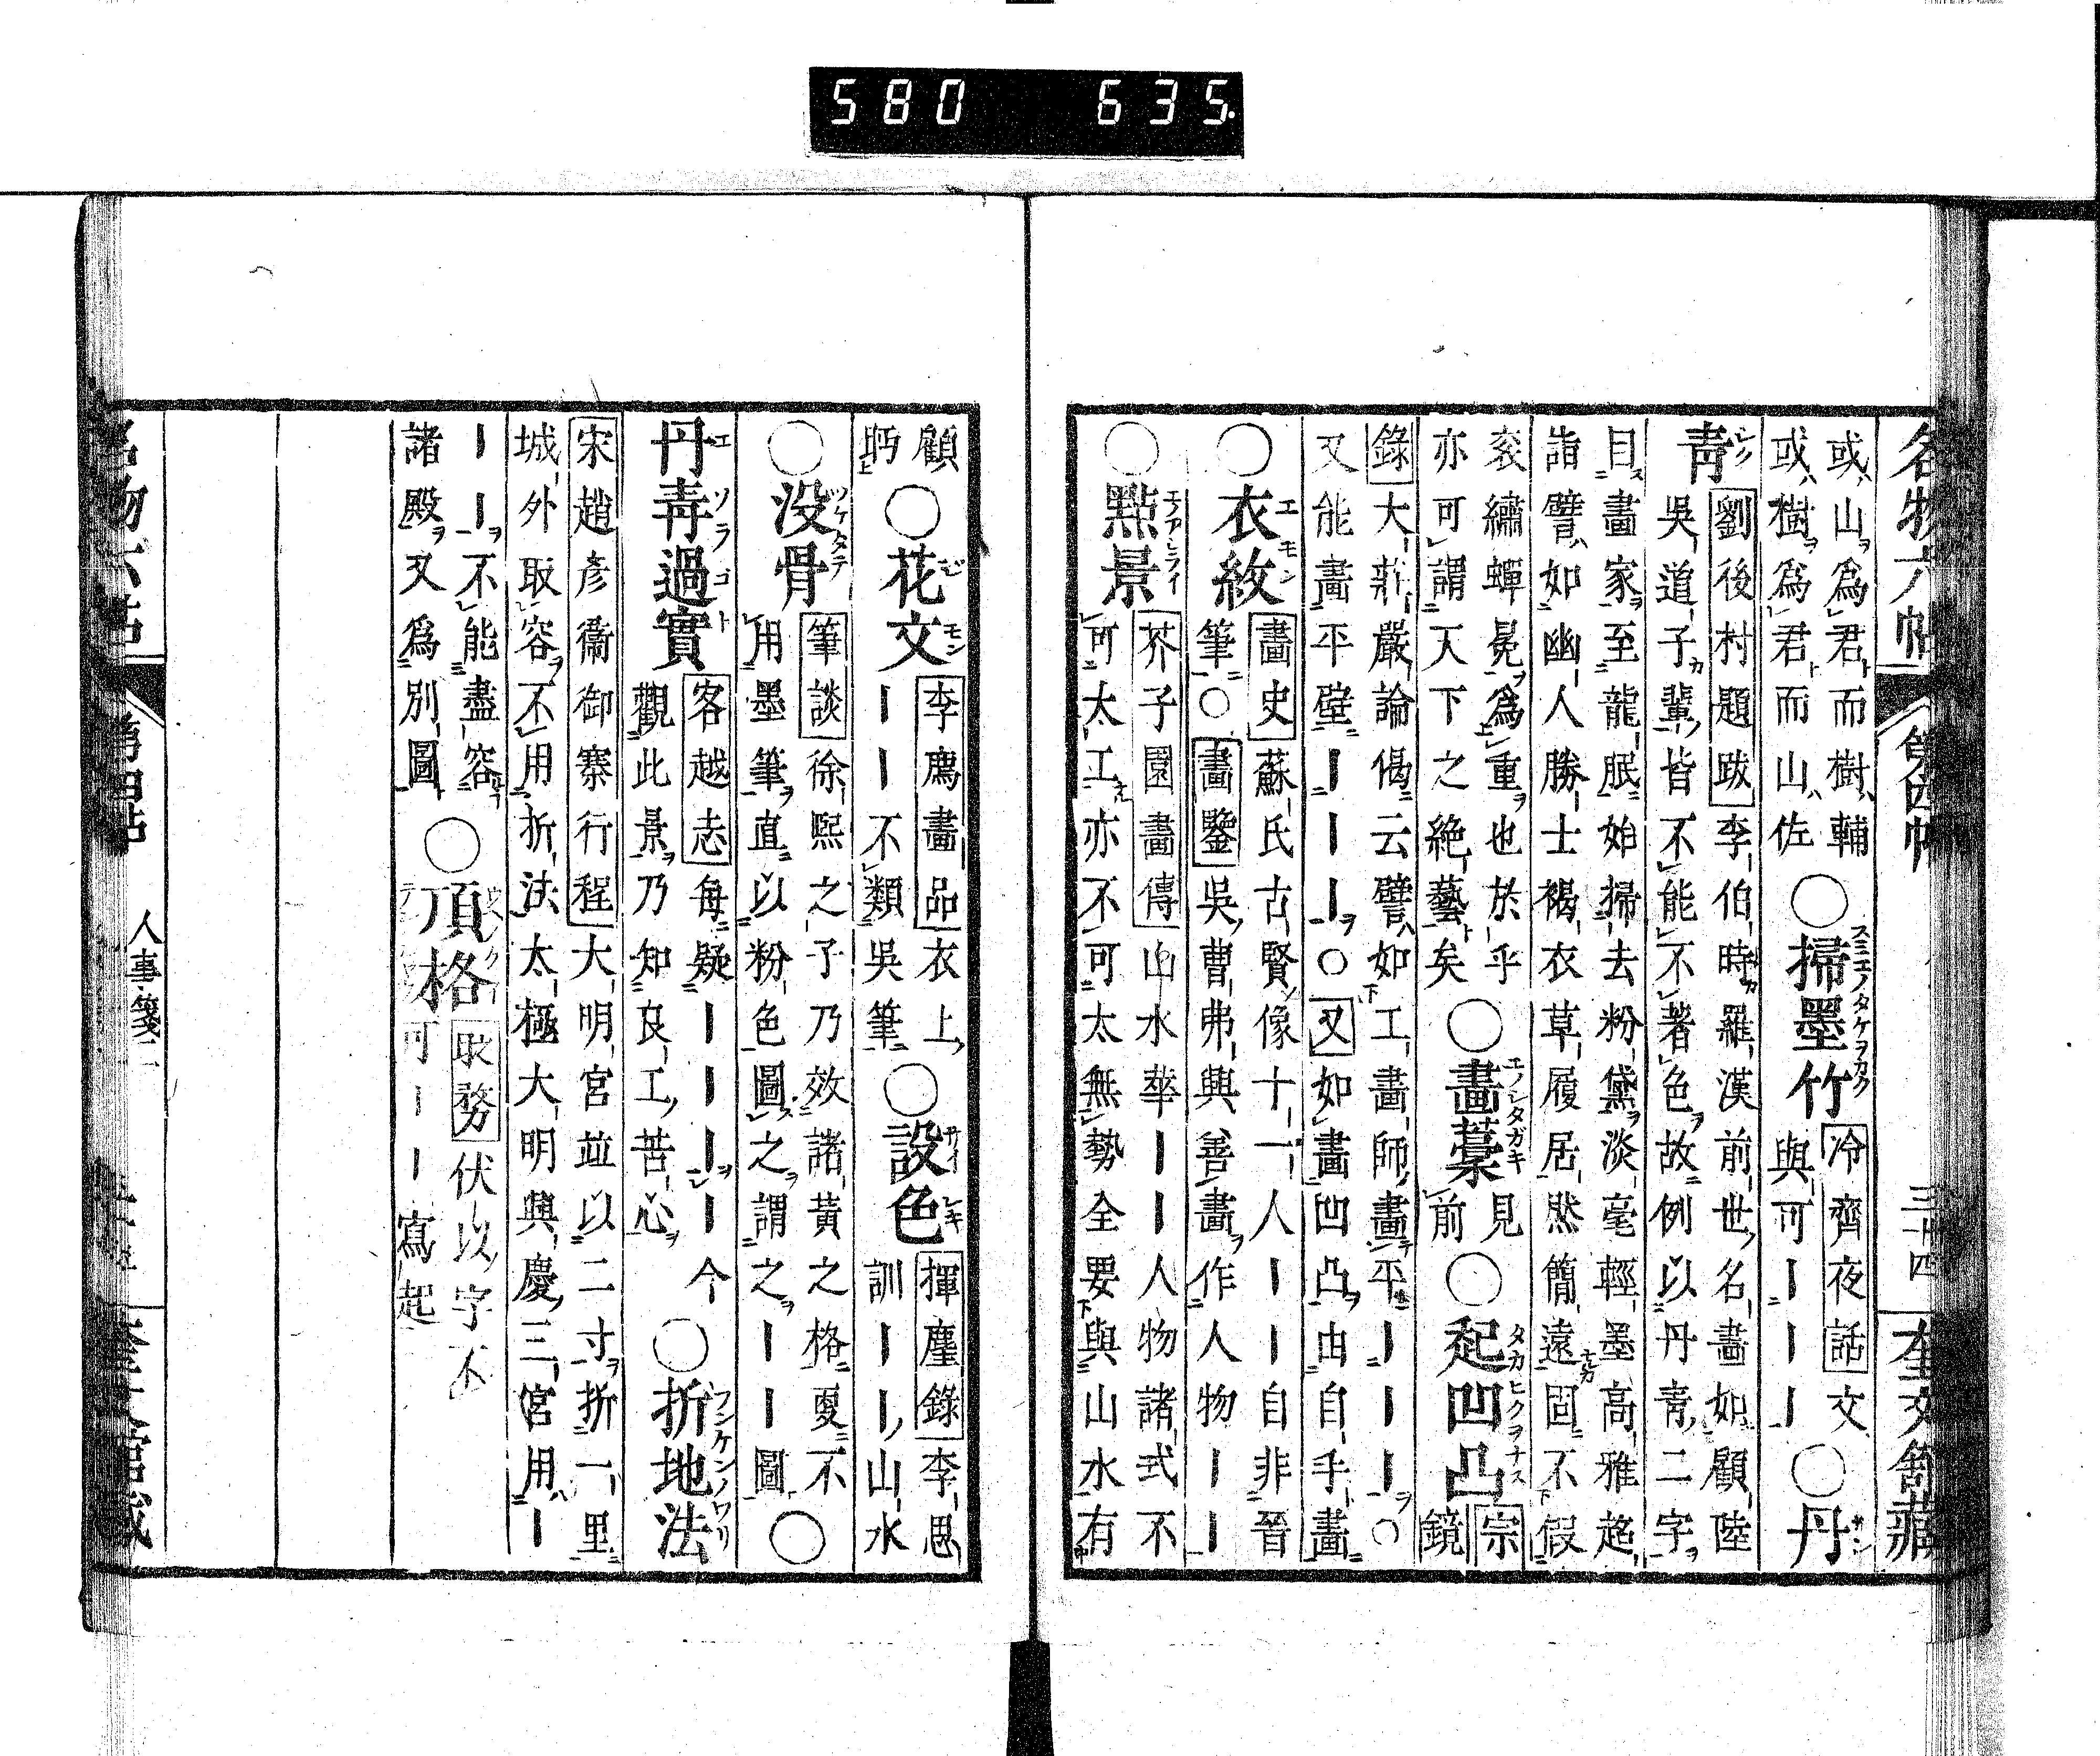 580 635.
名物六帖 第四帖 三十四 奎文舘藏
或山爲君而樹輔
或樹爲君而山佐
○掃墨竹 冷齊夜話 文
與可｜｜｜ ○丹
青 劉後村題跋 李伯時羅漢前世名畫如顧陸
吳道子輩皆不能不著色故例以丹青二字
目畫家至龍眠始掃去粉黛淡毫輕墨高雅超
詣譬如幽人勝士褐衣草履居然簡遠固不假
衮繡蟬冕爲重也於乎
亦可謂天下之絶藝矣
○畫藁 見前
○起凹凸 宗鏡
錄 大莊嚴論偈云譬如工畫師畫平｜｜｜○
又能畫平壁｜｜｜○又如畫凹凸由自手畫
○衣紋 畫史 蘇氏古賢像十一人｜｜自非晉
筆○畫鑒 吳曹弗興善畫作人物｜｜
○點景 芥子園畫傳 山水華｜｜人物諸式不
可太工亦不可太無勢全要與山水有
顧
眄
○花文 李廌畫品 衣上
｜｜不類吳筆
○設色 揮麈錄 李思
訓｜｜山水
○没骨 筆談 徐熙之子乃效諸黃之格更不
用墨筆直以粉色圖之謂之｜｜圖
○
丹青過實 客越志 每疑｜｜｜｜今
觀此景乃知良工苦心
○折地法
宋趙彥衞御寨行程 大明宮並以二寸折一里
城外取容不用折法太極大明興慶三宮用｜
｜｜不能盡容
諸殿又爲別圖
○頂格 取務 伏以字不
可｜｜寫起
名物六帖 第四帖 人事箋二 奎文舘藏